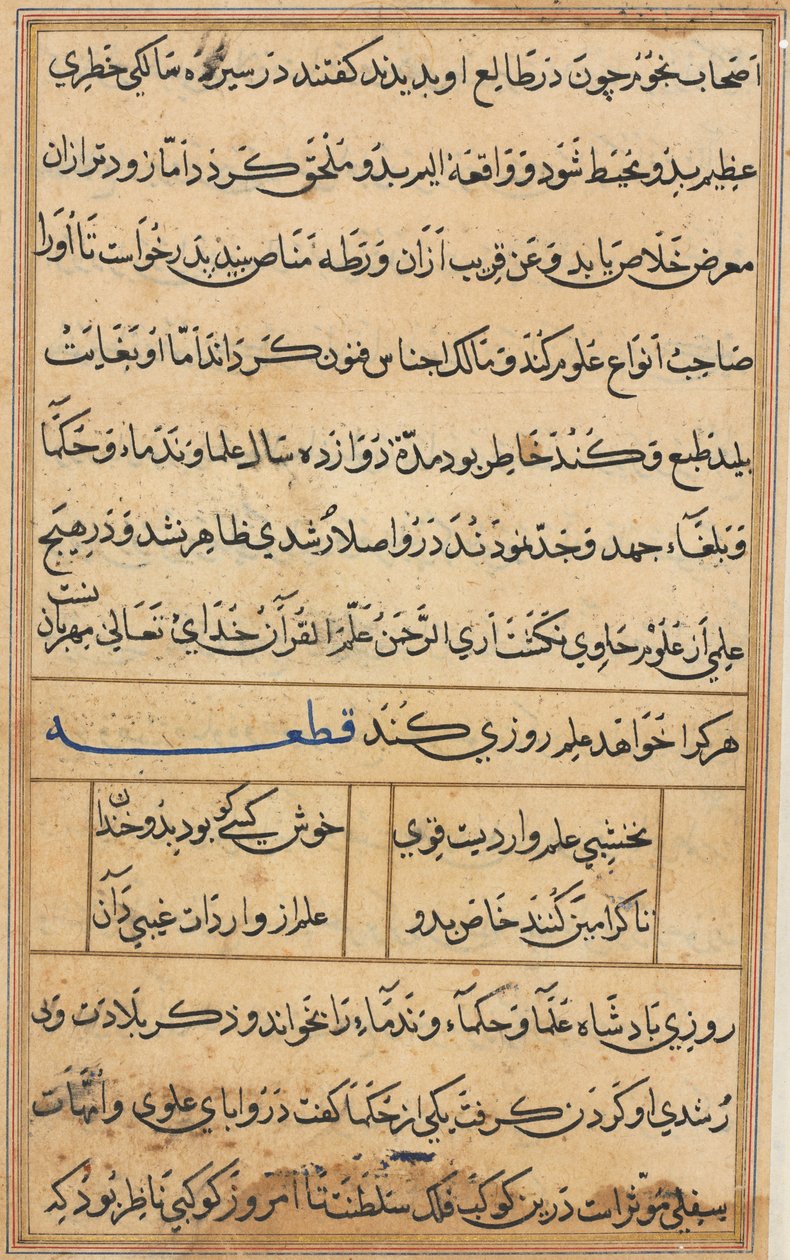 اَصحاب نجوم چون دَر طالع او بدیدند کفتند در سیزده سَالکی خَطرِی
عظِیم بدِو محیط شَود وَ وَاقعَهٔ الیم بدَو مُلْحَق کَردد اَمّا زود تر ازان
معرض خَلَاص یابد وَ عَن قریب اَزان وَرطَه مَنَاص بیند پدر خُواست تَا اُورا
صَاحِب اَنواع عَلوم کُنَد وَ مَالک اجناس فنون کَرداند اَمّا او بَغَایَتْ
بلید طَبع وَ کُند خَاطِر بود مدّة دَوَازده سَال علما وَ نَدَماء وَ حُکَمَا
وَ بَلغَآء جهد وَ جَدّ نمودند دَر وا اصلا رُشدی ظاهر نشد وَ در هیَج
علِمی اَز عُلَوْم حَاوِی نکَشَت اَری الرَّحمَنُ عَلَّمَ القُرآنُ خَدَایْ تَعَالیٰ مهربان نست
هر کرا خَوَاهد علِم روزی کُنَد قطعه
نخشبِی علم واردیست قوِی
خوش کَسی کو بود بِدُو خندان
تا کرامین کُنند خَاصَ بدو
علم از واردات غیبی دَآن
روزِی بَادشَاه عُلَمَا وَ حکمآء وَ نَدمَآء رَا بخواند و ذکر بَلادَت وَ بی
رُشدی او کَردَن کرفتَ یکی از حُکَمَا کفت دَر وا ابای علوِی وَ اُمّهَات
سِفلِی مُوّثر است دَرین کوکبَ فَلک سَلطَنَت تَا اَمروز کوکبی نَاظِر بُود که